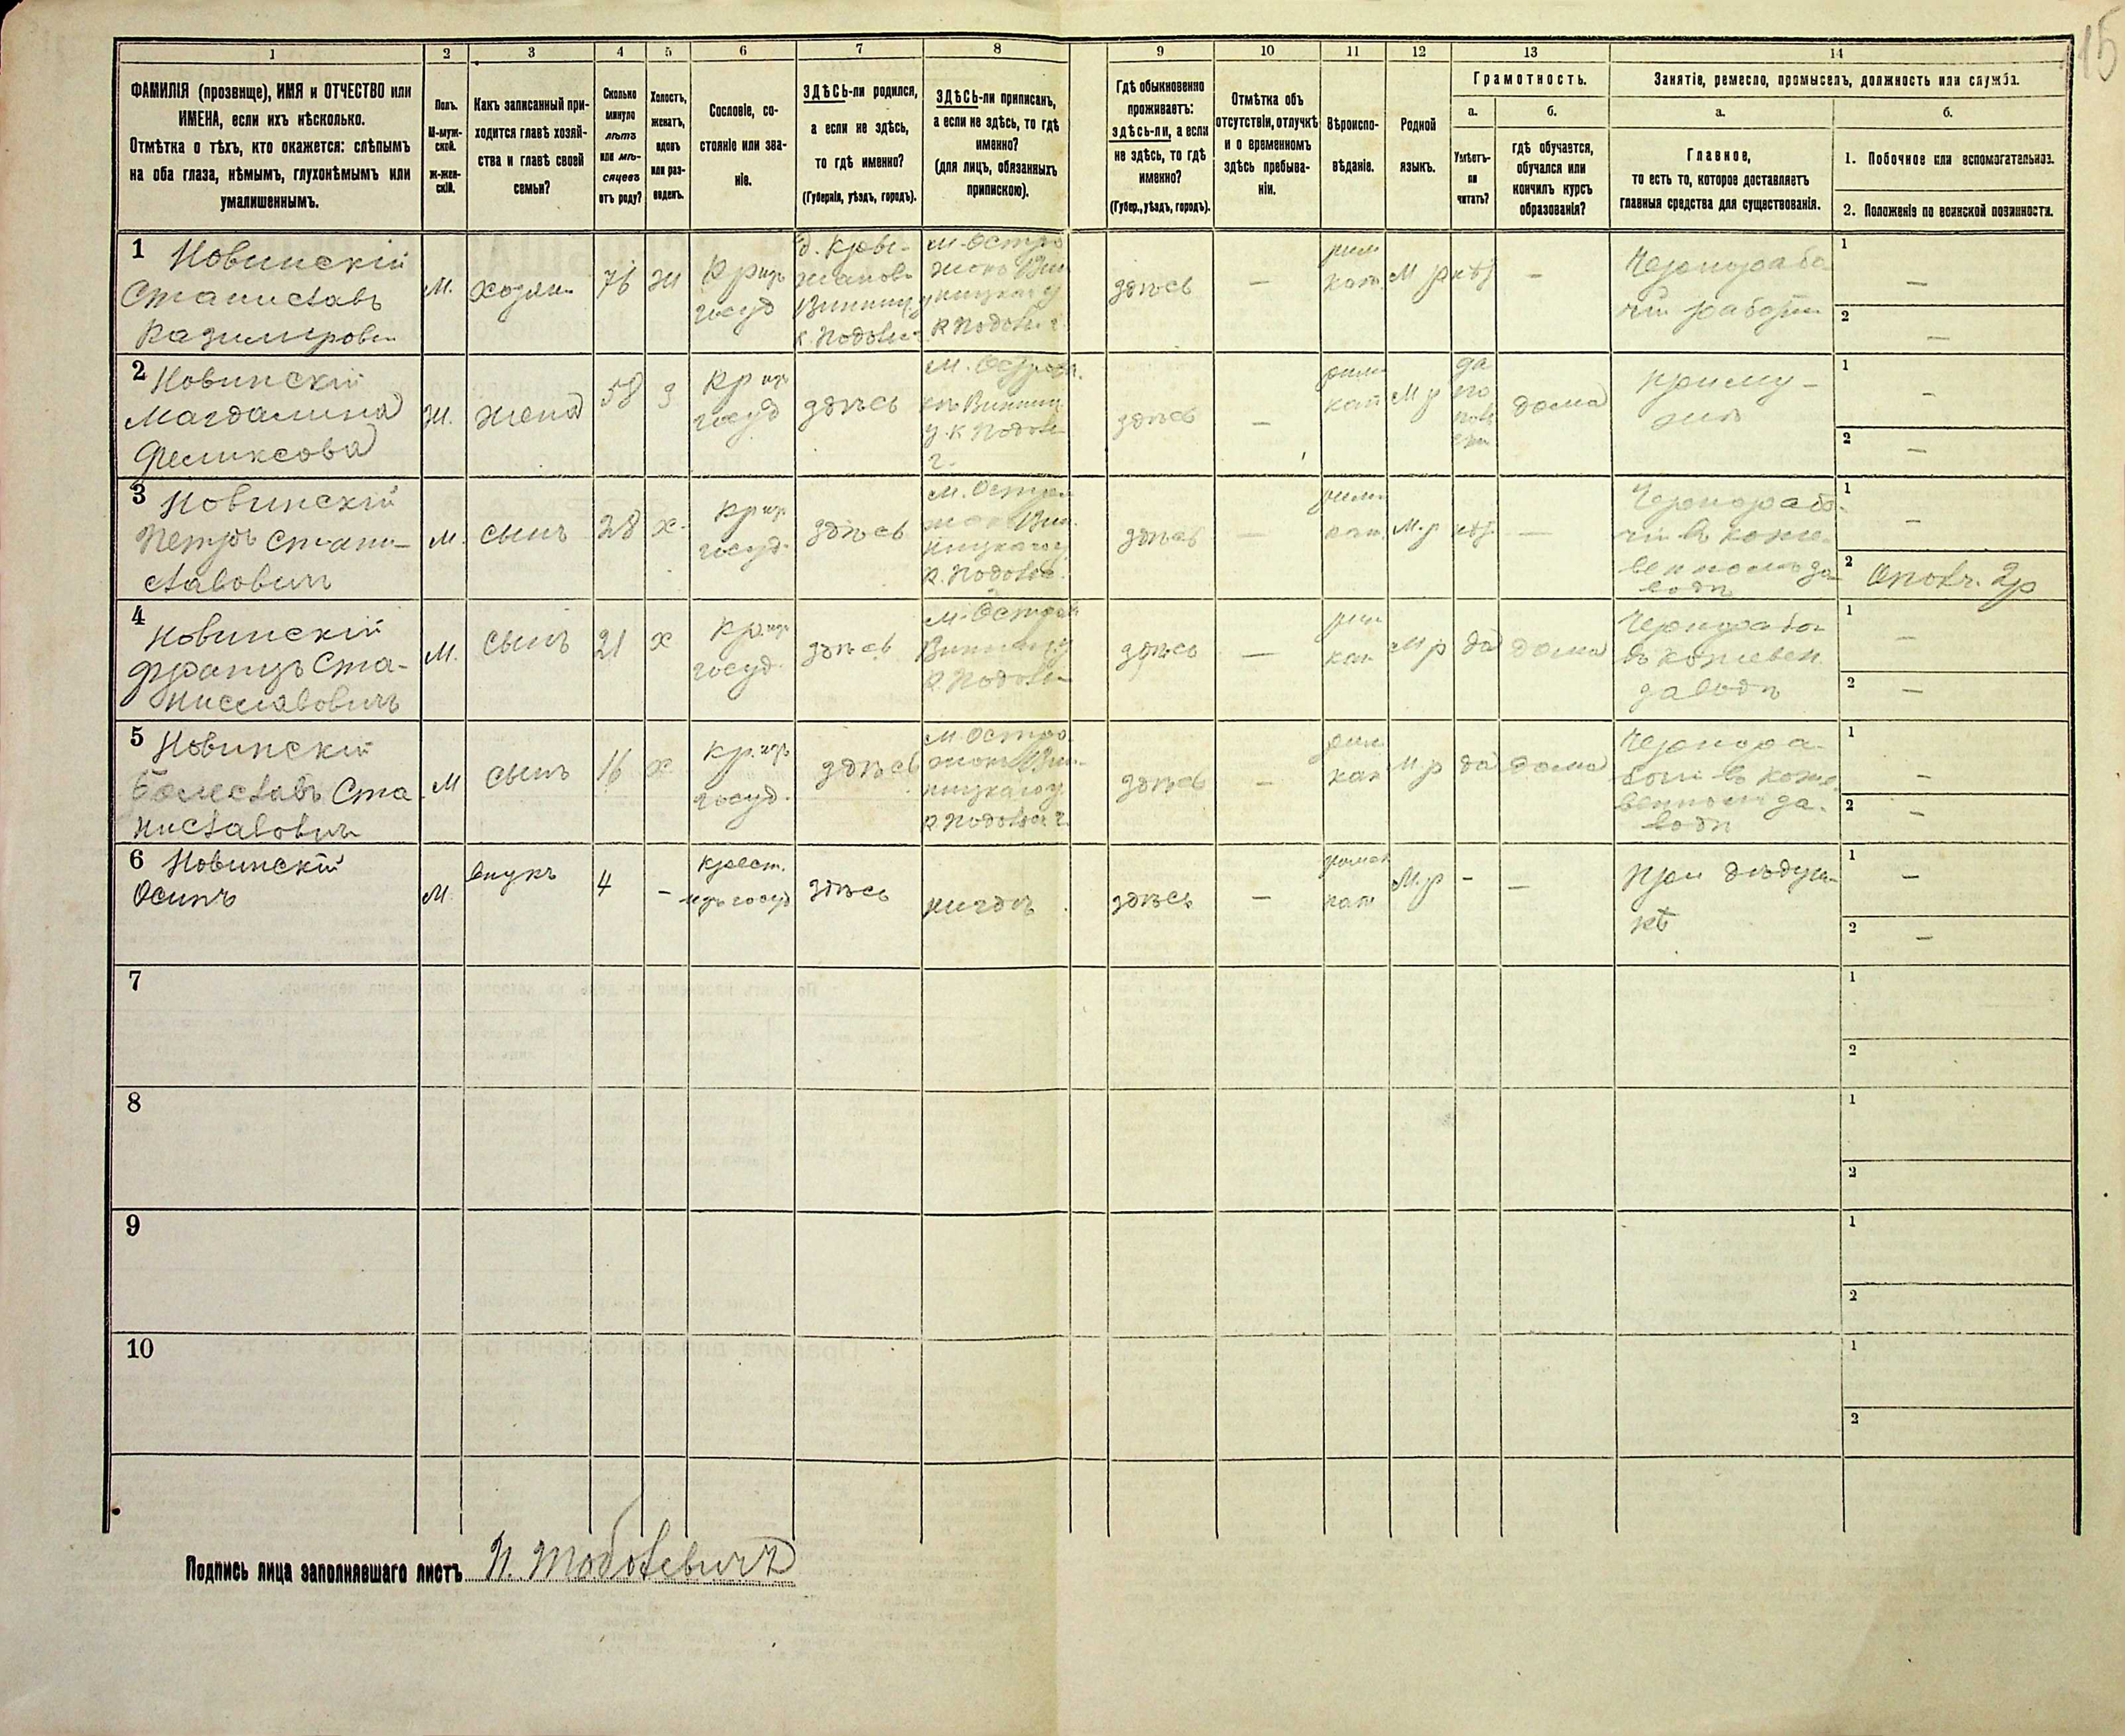 15
1 2 3 4 5 6 7 8 9 10 11 12 13 14
ФАМИЛІЯ (прозвище), ИМЯ и ОТЧЕСТВО или
ИМЕНА, если ихъ нѣсколько.
Отмѣтка о тѣхъ, кто окажется: слѣпымъ
на оба глаза, нѣмымъ, глухонѣмымъ или
умалишеннымъ.
Полъ.
М-муж-
ской.
Ж-жен-
скій.
Какъ записанный при-
ходится главѣ хозяй-
ства и главѣ своей
семьи?
Сколько
минуло
лѣтъ
или мѣ-
сяцевъ
отъ роду?
Холостъ,
женатъ,
вдовъ
или раз-
веденъ.
Сословіе, со-
стояніе или зва-
ніе.
ЗДѢСЬ-ли родился,
а если не здѣсь,
то гдѣ именно?
(Губернія, уѣздъ, городъ).
ЗДѢСЬ-ли приписанъ,
а если не здѣсь, то гдѣ
именно?
(для лицъ, обязанныхъ
припискою).
Гдѣ обыкновенно
проживаетъ:
здѣсь-ли, а если
не здѣсь, то гдѣ
именно?
(Губер., уѣздъ, городъ).
Отмѣтка объ
отсутствіи, отлучкѣ
и о временномъ
здѣсь пребыва-
ніи.
Вѣроиспо-
вѣданіе.
Родной
языкъ.
Грамотность.
а.
Умѣетъ-
ли
читать?
б.
гдѣ обучается,
обучался или
кончилъ курсъ
образованія?
Занятіе, ремесло, промыселъ, должность или служба.
а.
Главное,
то есть то, которое доставляетъ
главныя средства для существованія.
б.
1. Побочное или вспомогательное.
2. Положеніе по воинской повинности.
1 Новинскій
Станиславъ
Казимиров
М.
хозяин
76
Ж
Кр изъ
госуд
М. Остро
Вин
ницкаго у
К Подоль г.
здѣсь
—
рим
кат.
М р
нѣт
—
Чернорабо
чій работ
1 —
2 —
2 Новинскій
Магдалина
Феликсова
Ж.
жена
58
з
Кр изъ
госуд
здѣсь
здѣсь
—
рим
кат
М р
да
дома
при му-
жѣ
1 —
2 —
3 Новинскій
Петръ Стани-
славович
М.
сынъ
28
х.
Кр изъ
госуд.
здѣсь
здѣсь
—
рим
кат.
М. р
нѣт
—
Чернорабо-
чій въ коже-
венномъ за-
водѣ
1 —
2 Ополч. 2р
4 Новинскій
Францъ Ста-
ниславовичъ
М.
сынъ
21
х
Кр. изъ
госуд.
здѣсь
здѣсь
—
рим
кат
М р
да
дома
Чернорабоч
въ кожевен.
заводѣ
1 —
2 —
5 Новинскій
Болеславъ Ста
ниславовичъ
М
сынъ
16
х
Кр. изъ
госуд.
здѣсь
здѣсь
—
рим
кат
М р
да
дома
Чернора-
бочій въ коже
венном за-
водѣ
1 —
2 —
6 Новинскій
Осипъ
М.
внукъ
4
—
Крест.
изъ госуд
здѣсь
нигдѣ
здѣсь
—
кат
М. р
—
—
При дѣдуш-
кѣ
1 —
2 —
7 1
2
8 1
2
9 1
2
10 1
2
Подпись лица заполнявшаго листъ